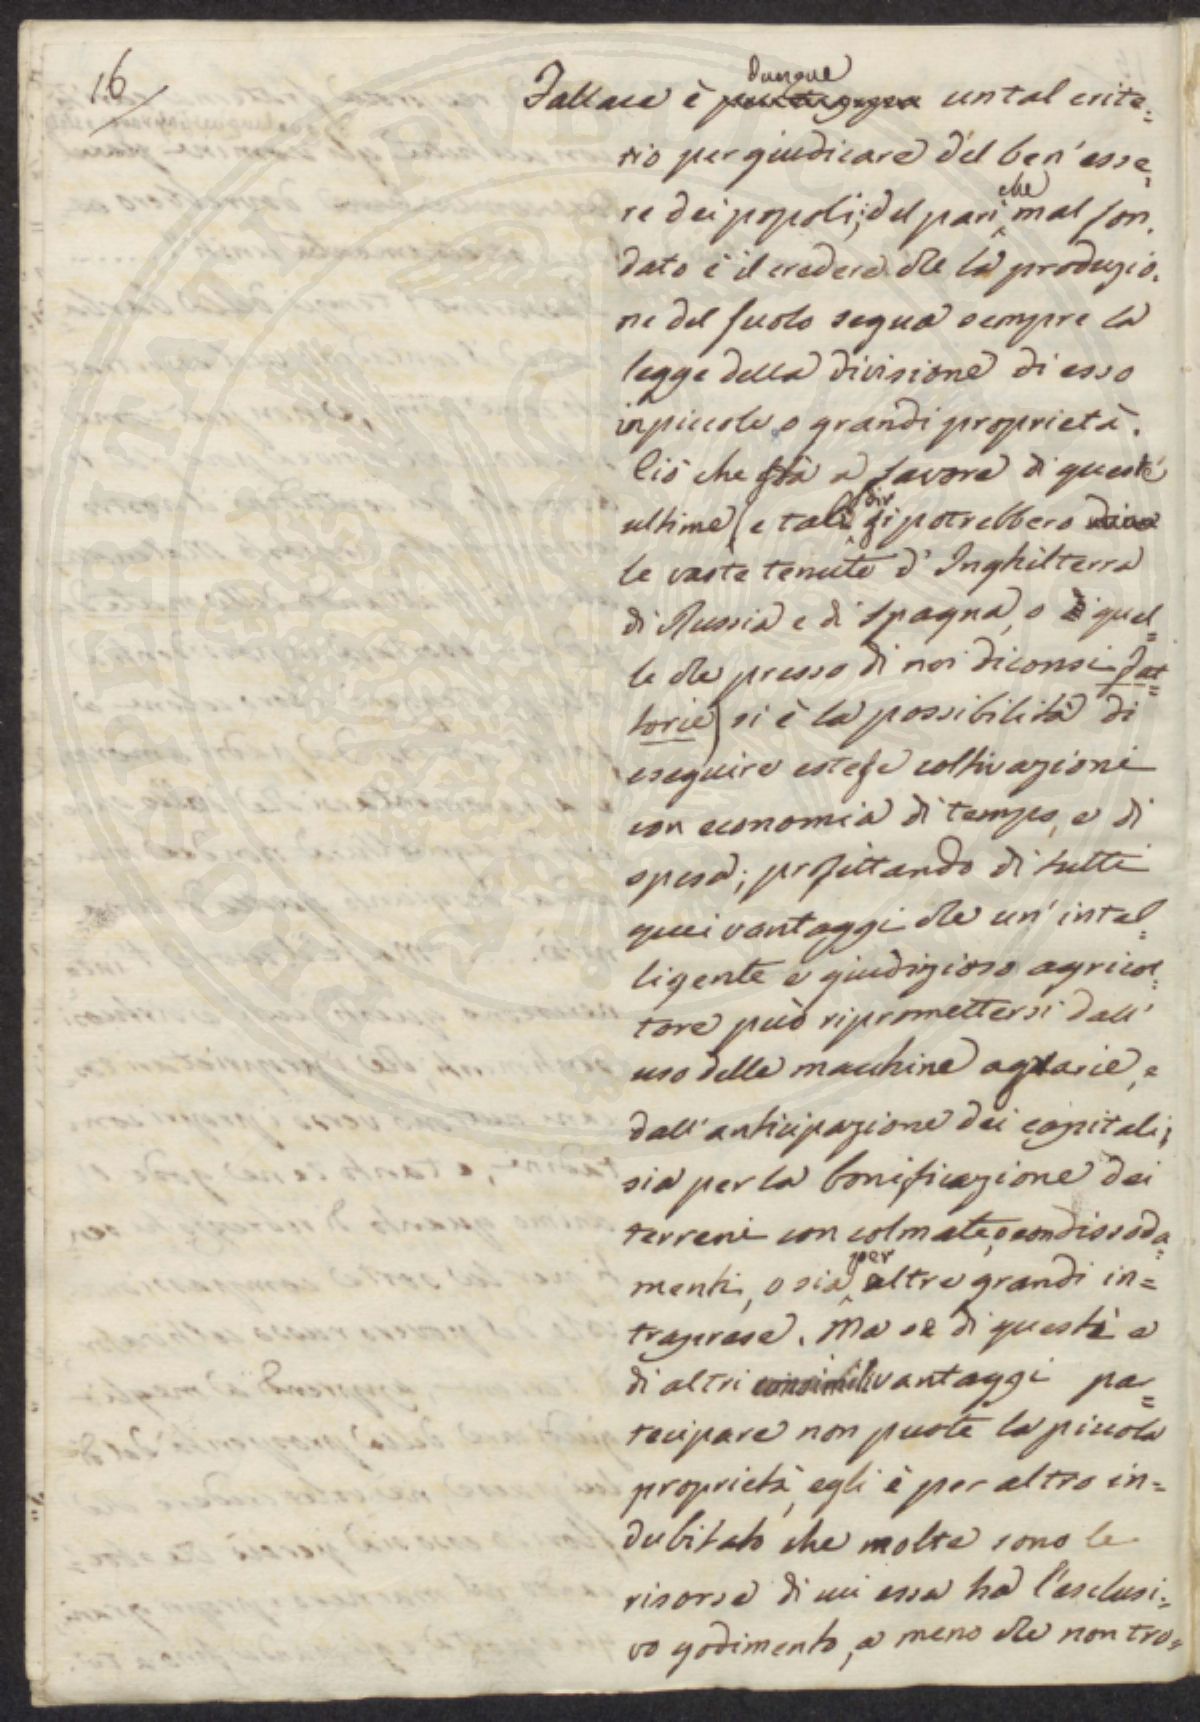 16
dunque
Fallace è un tal crite=
rio per giudicare del ben'esse=
re dei popoli; del pari che mal fon=
dato è il credere che la produzio=
ne del suolo segua sempre la
legge della divisione di esso
in piccole o grandi proprietà.
Ciò che stà a favore di queste
ultime (e tali dir si potrebbero
le vaste tenute d'Inghilterra
di Russia e di Spagna, o quel=
le che presso di noi diconsi fat=
torie) si è la possibilità di
eseguire estese coltivazioni
con economia di tempo, e di
spesa; profittando di tutti
quei vantaggi che un'intel=
ligente e giudizioso agricol=
tore può ripromettersi dall'
uso delle macchine agrarie, e
dall'anticipazione dei capitali;
sia per la bonificazione dei
terreni con colmate, o con dissoda=
menti, o sia per altre grandi in=
traprese. Ma se di questi e
di altri consimili vantaggi par=
tecipare non puote la piccola
proprietà, egli è per altro in=
dubitato che molte sono le
risorse di cui essa ha l'esclusi=
vo godimento, a meno che non tro=